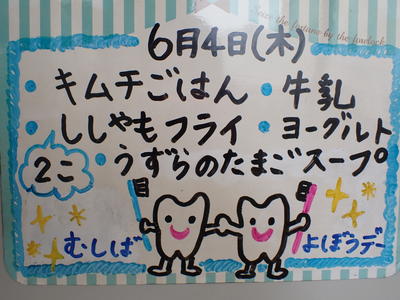 Seize the fortune by the forelock.
6月4日(木)
・キムチごはん ・牛乳
・ししゃもフライ ・ヨーグルト
2こ ・うずらのたまごスープ
むしば よぼうデー